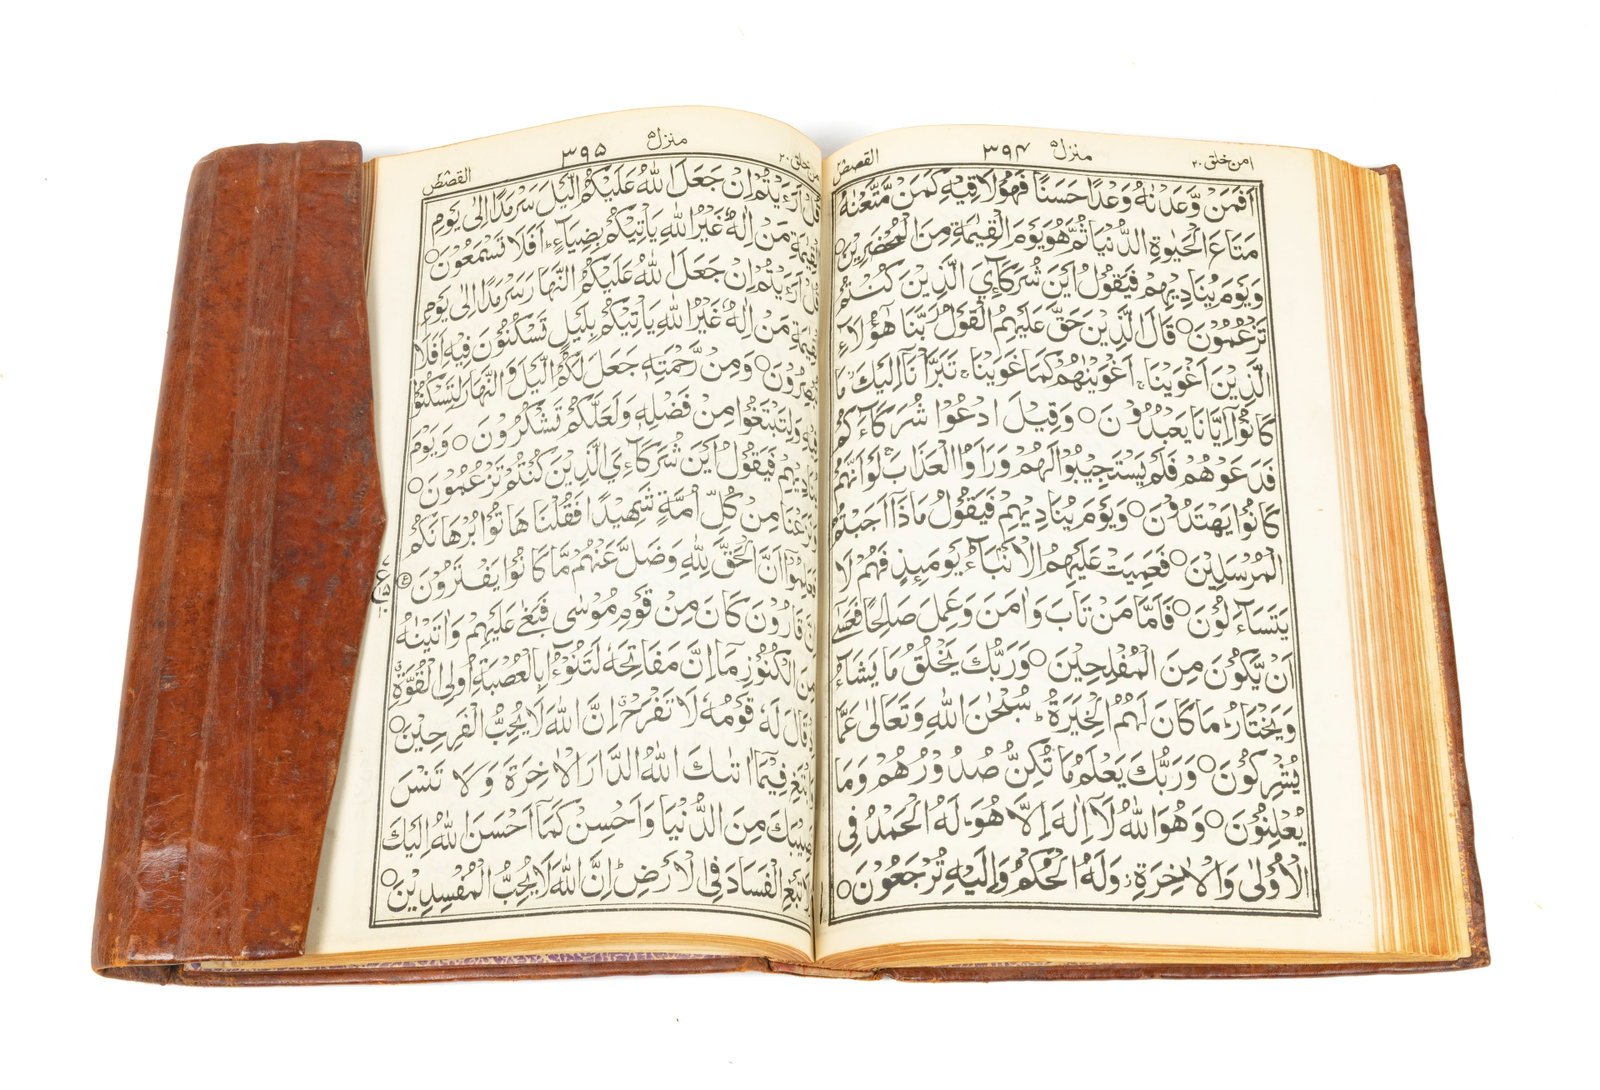 امن خلق ٢٠ منزل ٥ ٣٩٤ القصص
اَفَمَنْ وَّعَدْنٰهُ وَعْدًا حَسَنًا فَهُوَ لَاقِيْهِ كَمَنْ مَّتَّعْنٰهُ
مَتَاعَ الْحَيٰوةِ الدُّنْيَا ثُمَّ هُوَ يَوْمَ الْقِيٰمَةِ مِنَ الْمُحْضَرِيْنَ ○
وَيَوْمَ يُنَادِيْهِمْ فَيَقُوْلُ اَيْنَ شُرَكَآءِيَ الَّذِيْنَ كُنْتُمْ
تَزْعُمُوْنَ ○ قَالَ الَّذِيْنَ حَقَّ عَلَيْهِمُ الْقَوْلُ رَبَّنَا هٰٓؤُلَآءِ
الَّذِيْنَ اَغْوَيْنَا ۚ اَغْوَيْنٰهُمْ كَمَا غَوَيْنَا ۚ تَبَرَّاْنَآ اِلَيْكَ مَا
كَانُوْٓا اِيَّانَا يَعْبُدُوْنَ ○ وَقِيْلَ ادْعُوْا شُرَكَآءَكُمْ
فَدَعَوْهُمْ فَلَمْ يَسْتَجِيْبُوْا لَهُمْ وَرَاَوُا الْعَذَابَ ۚ لَوْ اَنَّهُمْ
كَانُوْا يَهْتَدُوْنَ ○ وَيَوْمَ يُنَادِيْهِمْ فَيَقُوْلُ مَاذَآ اَجَبْتُمُ
الْمُرْسَلِيْنَ ○ فَعَمِيَتْ عَلَيْهِمُ الْاَنْۢبَآءُ يَوْمَئِذٍ فَهُمْ لَا
يَتَسَآءَلُوْنَ ○ فَاَمَّا مَنْ تَابَ وَاٰمَنَ وَعَمِلَ صَالِحًا فَعَسٰٓى
اَنْ يَّكُوْنَ مِنَ الْمُفْلِحِيْنَ ○ وَرَبُّكَ يَخْلُقُ مَا يَشَآءُ
وَيَخْتَارُ ؕ مَا كَانَ لَهُمُ الْخِيَرَةُ ؕ سُبْحٰنَ اللّٰهِ وَتَعَالٰى عَمَّا
يُشْرِكُوْنَ ○ وَرَبُّكَ يَعْلَمُ مَا تُكِنُّ صُدُوْرُهُمْ وَمَا
يُعْلِنُوْنَ ○ وَهُوَ اللّٰهُ لَآ اِلٰهَ اِلَّا هُوَ ؕ لَهُ الْحَمْدُ فِى
الْاُوْلٰى وَالْاٰخِرَةِ ؗ وَلَهُ الْحُكْمُ وَاِلَيْهِ تُرْجَعُوْنَ ○
من خلق ٢٠ منزل ٥ ٣٩٥ القصص
قُلْ اَرَءَيْتُمْ اِنْ جَعَلَ اللّٰهُ عَلَيْكُمُ الَّيْلَ سَرْمَدًا اِلٰى يَوْمِ
الْقِيٰمَةِ مَنْ اِلٰهٌ غَيْرُ اللّٰهِ يَاْتِيْكُمْ بِضِيَآءٍ ؕ اَفَلَا تَسْمَعُوْنَ ○
قُلْ اَرَءَيْتُمْ اِنْ جَعَلَ اللّٰهُ عَلَيْكُمُ النَّهَارَ سَرْمَدًا اِلٰى يَوْمِ
الْقِيٰمَةِ مَنْ اِلٰهٌ غَيْرُ اللّٰهِ يَاْتِيْكُمْ بِلَيْلٍ تَسْكُنُوْنَ فِيْهِ ؕ اَفَلَا
تُبْصِرُوْنَ ○ وَمِنْ رَّحْمَتِهٖ جَعَلَ لَكُمُ الَّيْلَ وَالنَّهَارَ لِتَسْكُنُوْا
فِيْهِ وَلِتَبْتَغُوْا مِنْ فَضْلِهٖ وَلَعَلَّكُمْ تَشْكُرُوْنَ ○ وَيَوْمَ
يُنَادِيْهِمْ فَيَقُوْلُ اَيْنَ شُرَكَآءِيَ الَّذِيْنَ كُنْتُمْ تَزْعُمُوْنَ ○
وَنَزَعْنَا مِنْ كُلِّ اُمَّةٍ شَهِيْدًا فَقُلْنَا هَاتُوْا بُرْهَانَكُمْ
فَعَلِمُوْٓا اَنَّ الْحَقَّ لِلّٰهِ وَضَلَّ عَنْهُمْ مَّا كَانُوْا يَفْتَرُوْنَ
اِنَّ قَارُوْنَ كَانَ مِنْ قَوْمِ مُوْسٰى فَبَغٰى عَلَيْهِمْ وَاٰتَيْنٰهُ
مِنَ الْكُنُوْزِ مَآ اِنَّ مَفَاتِحَهٗ لَتَنُوْٓاُ بِالْعُصْبَةِ اُولِى الْقُوَّةِ
اِذْ قَالَ لَهٗ قَوْمُهٗ لَا تَفْرَحْ اِنَّ اللّٰهَ لَا يُحِبُّ الْفَرِحِيْنَ ○
وَابْتَغِ فِيْمَآ اٰتٰىكَ اللّٰهُ الدَّارَ الْاٰخِرَةَ وَلَا تَنْسَ
نَصِيْبَكَ مِنَ الدُّنْيَا وَاَحْسِنْ كَمَآ اَحْسَنَ اللّٰهُ اِلَيْكَ
وَلَا تَبْغِ الْفَسَادَ فِى الْاَرْضِ ؕ اِنَّ اللّٰهَ لَا يُحِبُّ الْمُفْسِدِيْنَ ○